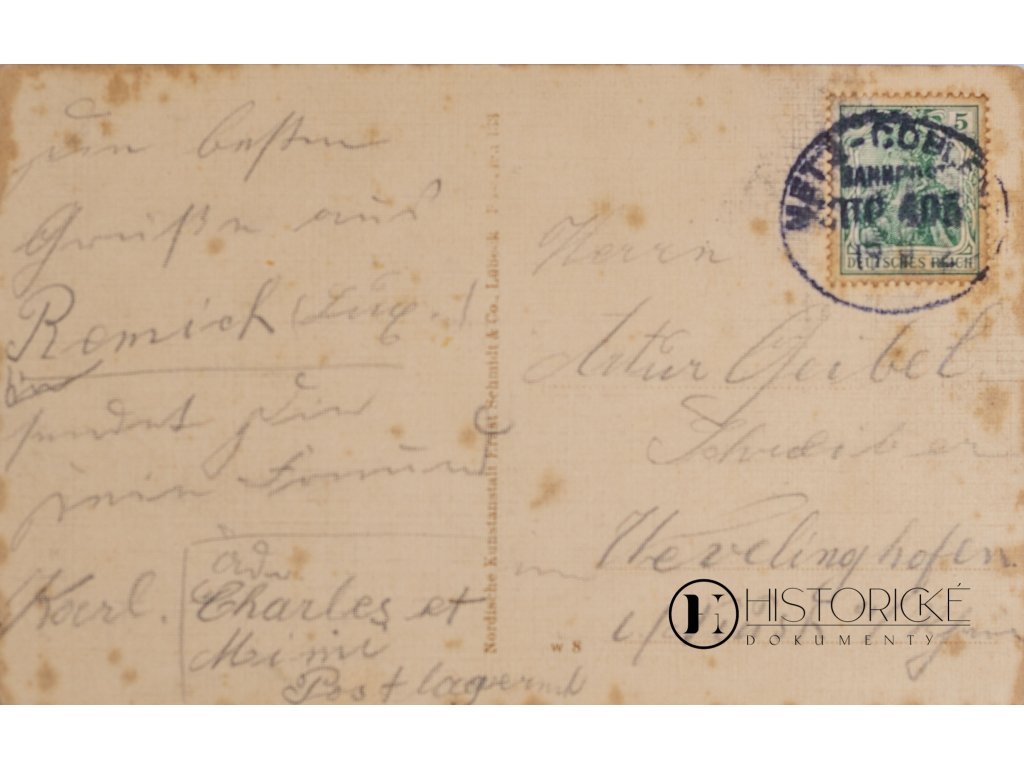 besten
Grüße aus
Remich (Lux.)
sendet Dir
Dein Freund
Karl.
Adr.
Charles et
Mimi
Postlagernd
Nordische Kunstanstalt Ernst Schmidt & Co., Lübeck
W 8
5
DEUTSCHES REICH
METZ-COBLENZ
BAHNPOST
ZUG 405
Herrn
Artur Geibel.
Schreiber
Wevelinghofen
HISTORICKÉ
DOKUMENTY